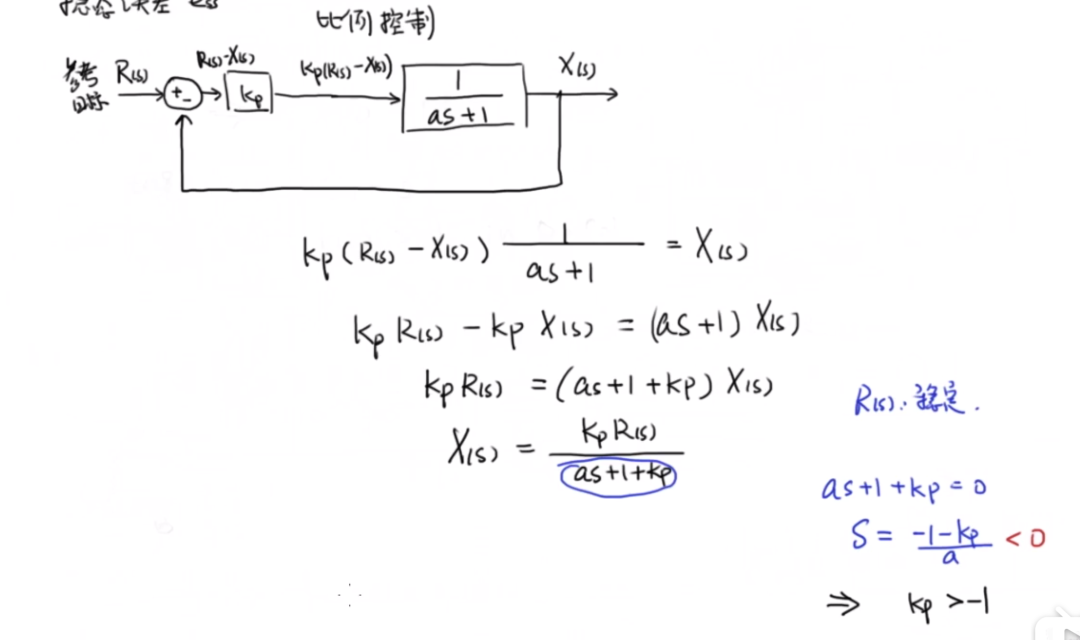 稳态误差 ess
比例控制
参考目标 R(s) + - R(s)-X(s) kp kp(R(s)-X(s)) 1/(as+1) X(s)
kp(R(s) - X(s)) 1/(as+1) = X(s)
kp R(s) - kp X(s) = (as+1) X(s)
kp R(s) = (as+1+kp) X(s)
X(s) = kp R(s)/(as+1+kp)
R(s): 稳定.
as+1+kp=0
S = (-1-kp)/a < 0
⇒ kp >-1